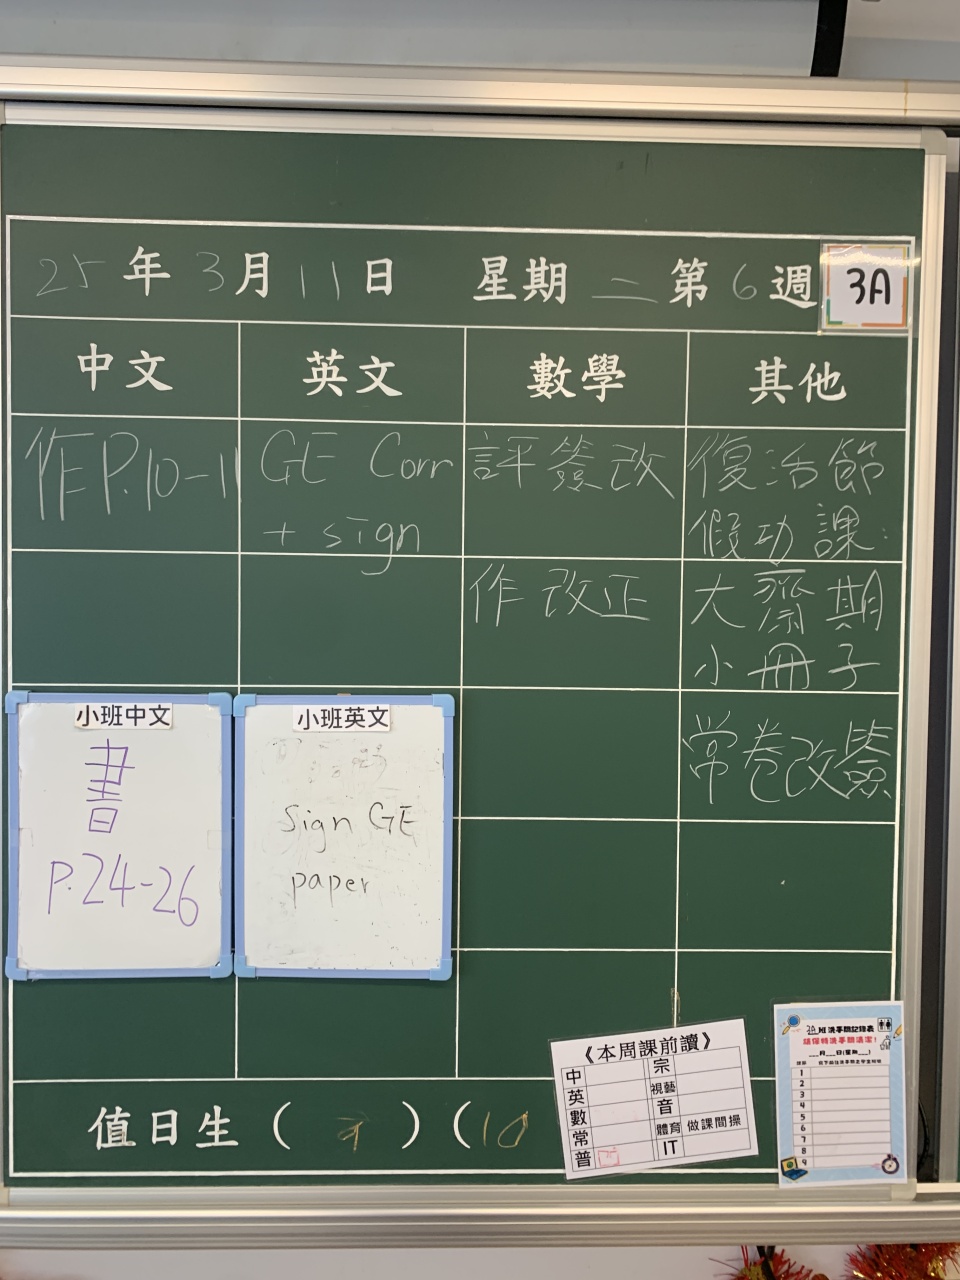 25年3月11日 星期二第6週 3A
中文 英文 數學 其他
作P.10-11
GE Corr
+ sign
評簽改
作改正
復活節
假功課:
大齋期
小冊子
常卷改簽
小班中文
書
P.24-26
小班英文
sign GE
paper
值日生( )(10
《本周課前讀》
中 宗
英 視藝
數 音
常 體育 做課間操
普 IT
3A班洗手間記錄表
請保持洗手間清潔!
___月___日(星期___)
1
2
3
4
5
6
7
8
9